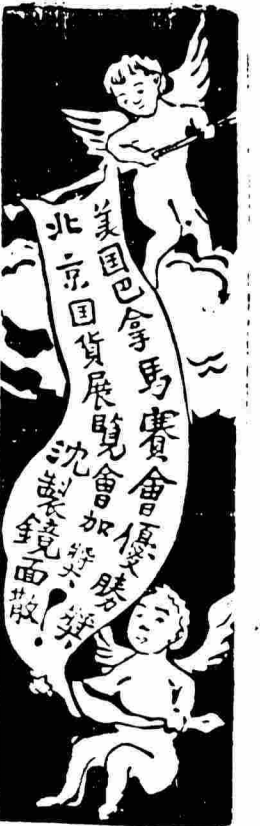 美国巴拿馬賽會優勝獎
北京国貨展覽會加獎
沈製鏡面散！